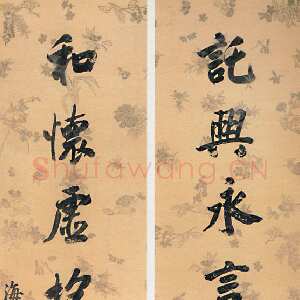 託興永言
和懷虛
海
Shufawang.CN